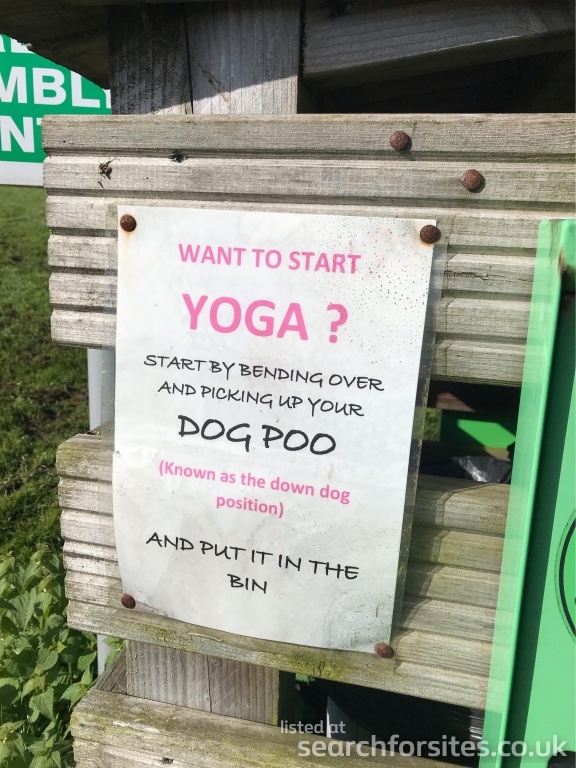 MBLY
WANT TO START
YOGA ?
START BY BENDING OVER
AND PICKING UP YOUR
DOG POO
(Known as the down dog
position)
AND PUT IT IN THE
BIN
listed at
searchforsites.co.uk